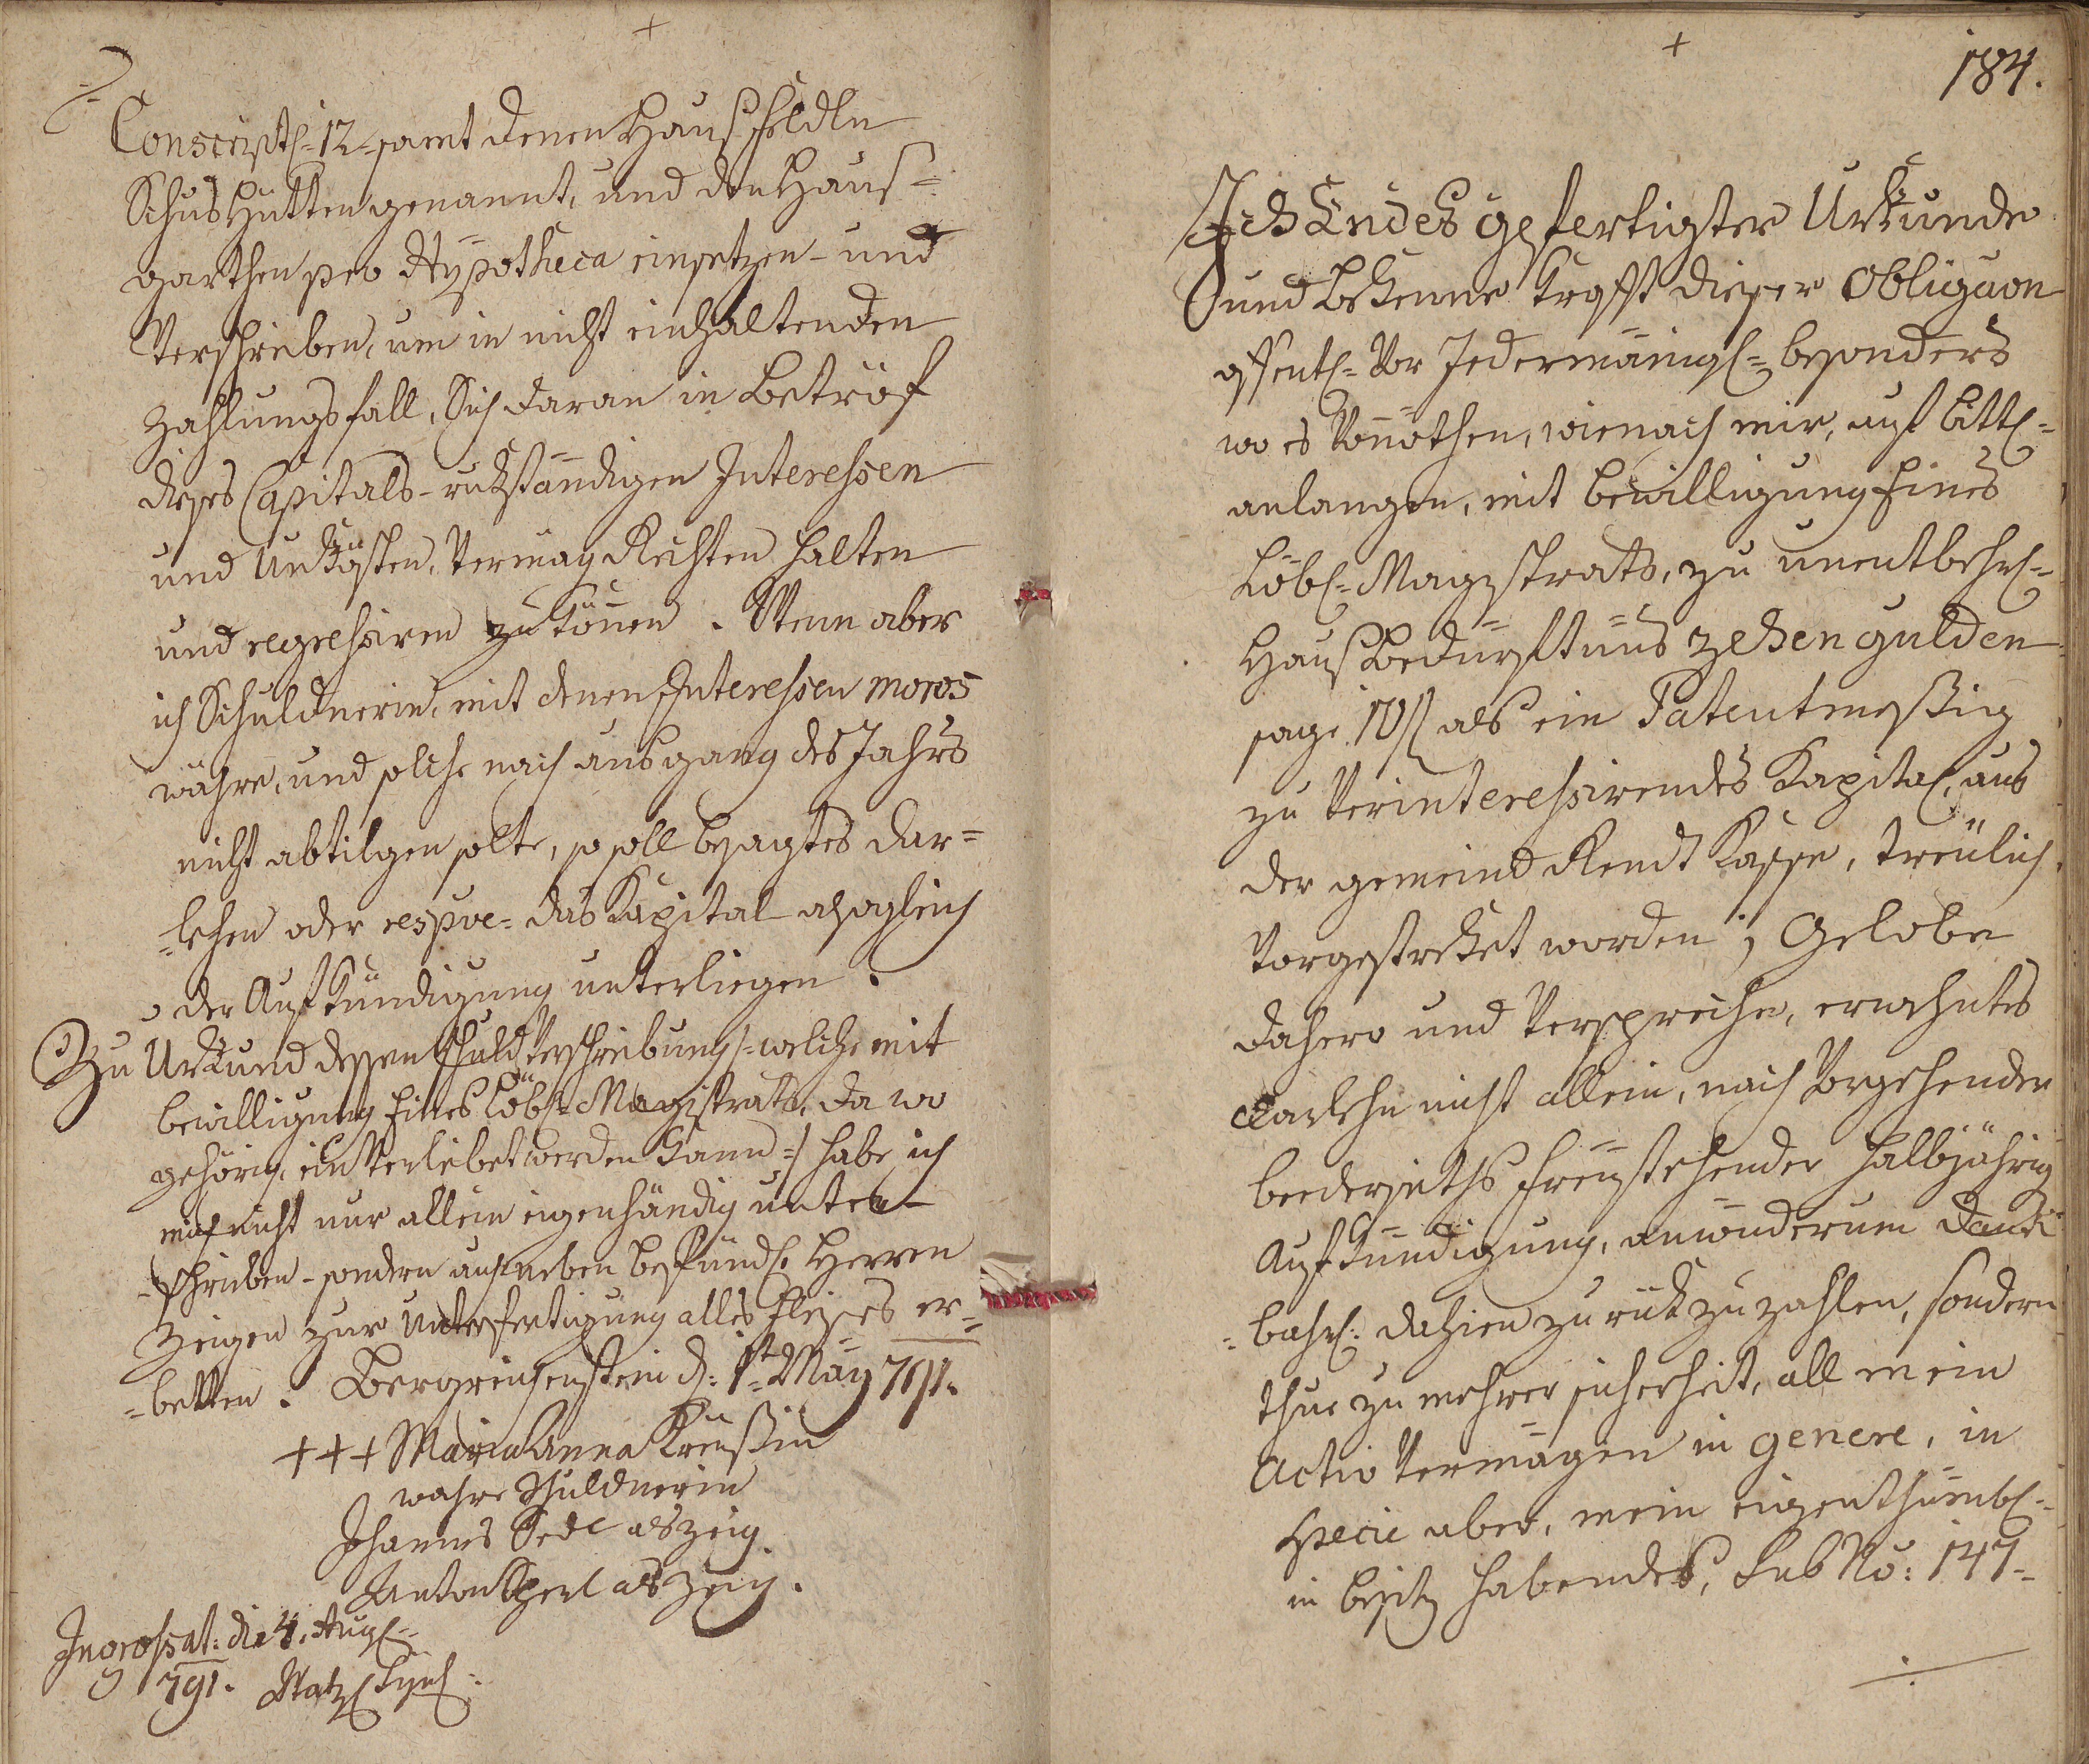 Conscript: 12. samt denen Hausfeldln
Schushütten genannt, und den Haus=
garthen pro Hypotheca einsetzen- und
Verschreiben, um in nicht einhaltenden
Zahlungsfall, Sich daran in Betröf
dieses Capitals- rukständigen Interessen
und Unkösten, Vermög Rechten halten
und regressiren zu könen. Wenn aber
ich Schuldnerin, mit denen Interessen moros
währe, und solche nach ausgang des Jahrs
nicht abtilgen solte, so soll besagtes Dar=
=lehen oder respve= das Kapital alsogleich
der Aufkündigung unterliegen.
Zu Urkund dessen Schuld Verschreibung /:welche mit
bewilligung Eines Löbl: Magistrats, da wo
gehörig, einverleibet werden kann:/ habe ich
mich nicht nur allein eigenhändig unter
=schrieben- sondern auch neben Herren
Zeugen zur Unterfertigung alles Fleises er=
=betten. Bergreichenstein d: 1t May 791.
+++ Maria Anna Kreußin
wahre Schuldnerin
Johannes Sedl als Zeug.
Anton Sperl als Zeug.
Ingrossat: die 4. Aug:
791.
184.
Ich Endes gefertigter Urkunde
und bekenne Krafft dieser Obligaon
offentl= Vor Jedermänigl= besonders
wo es Vonöthen, wienach mir, auf bittl=
anlangen, mit bewilligung Eines
Löbl= Magistrats, zu unentbehrl=
Hausbedürftnus zehen gulden
sage 10 f als ein Patentmeßig
zu Verinteressirendes Kapital, aus
der gemeind Rendt Kasse, treulich
Vorgestreket worden; Gelobe
dahero und Verspreche, erwehntes
Darlehn nicht allein, nach Vorgehender
beederseiths freystehender halbjährig
Aufkündigung, anwiderum dank
=bahrl: dahien zurükzuzahlen, sondern
thue zu mehrer sicherheit, all mein
Activ Vermögen in genere, in
specie aber, mein eigenthümbl=
in besitz habendes, Sub No: 147=